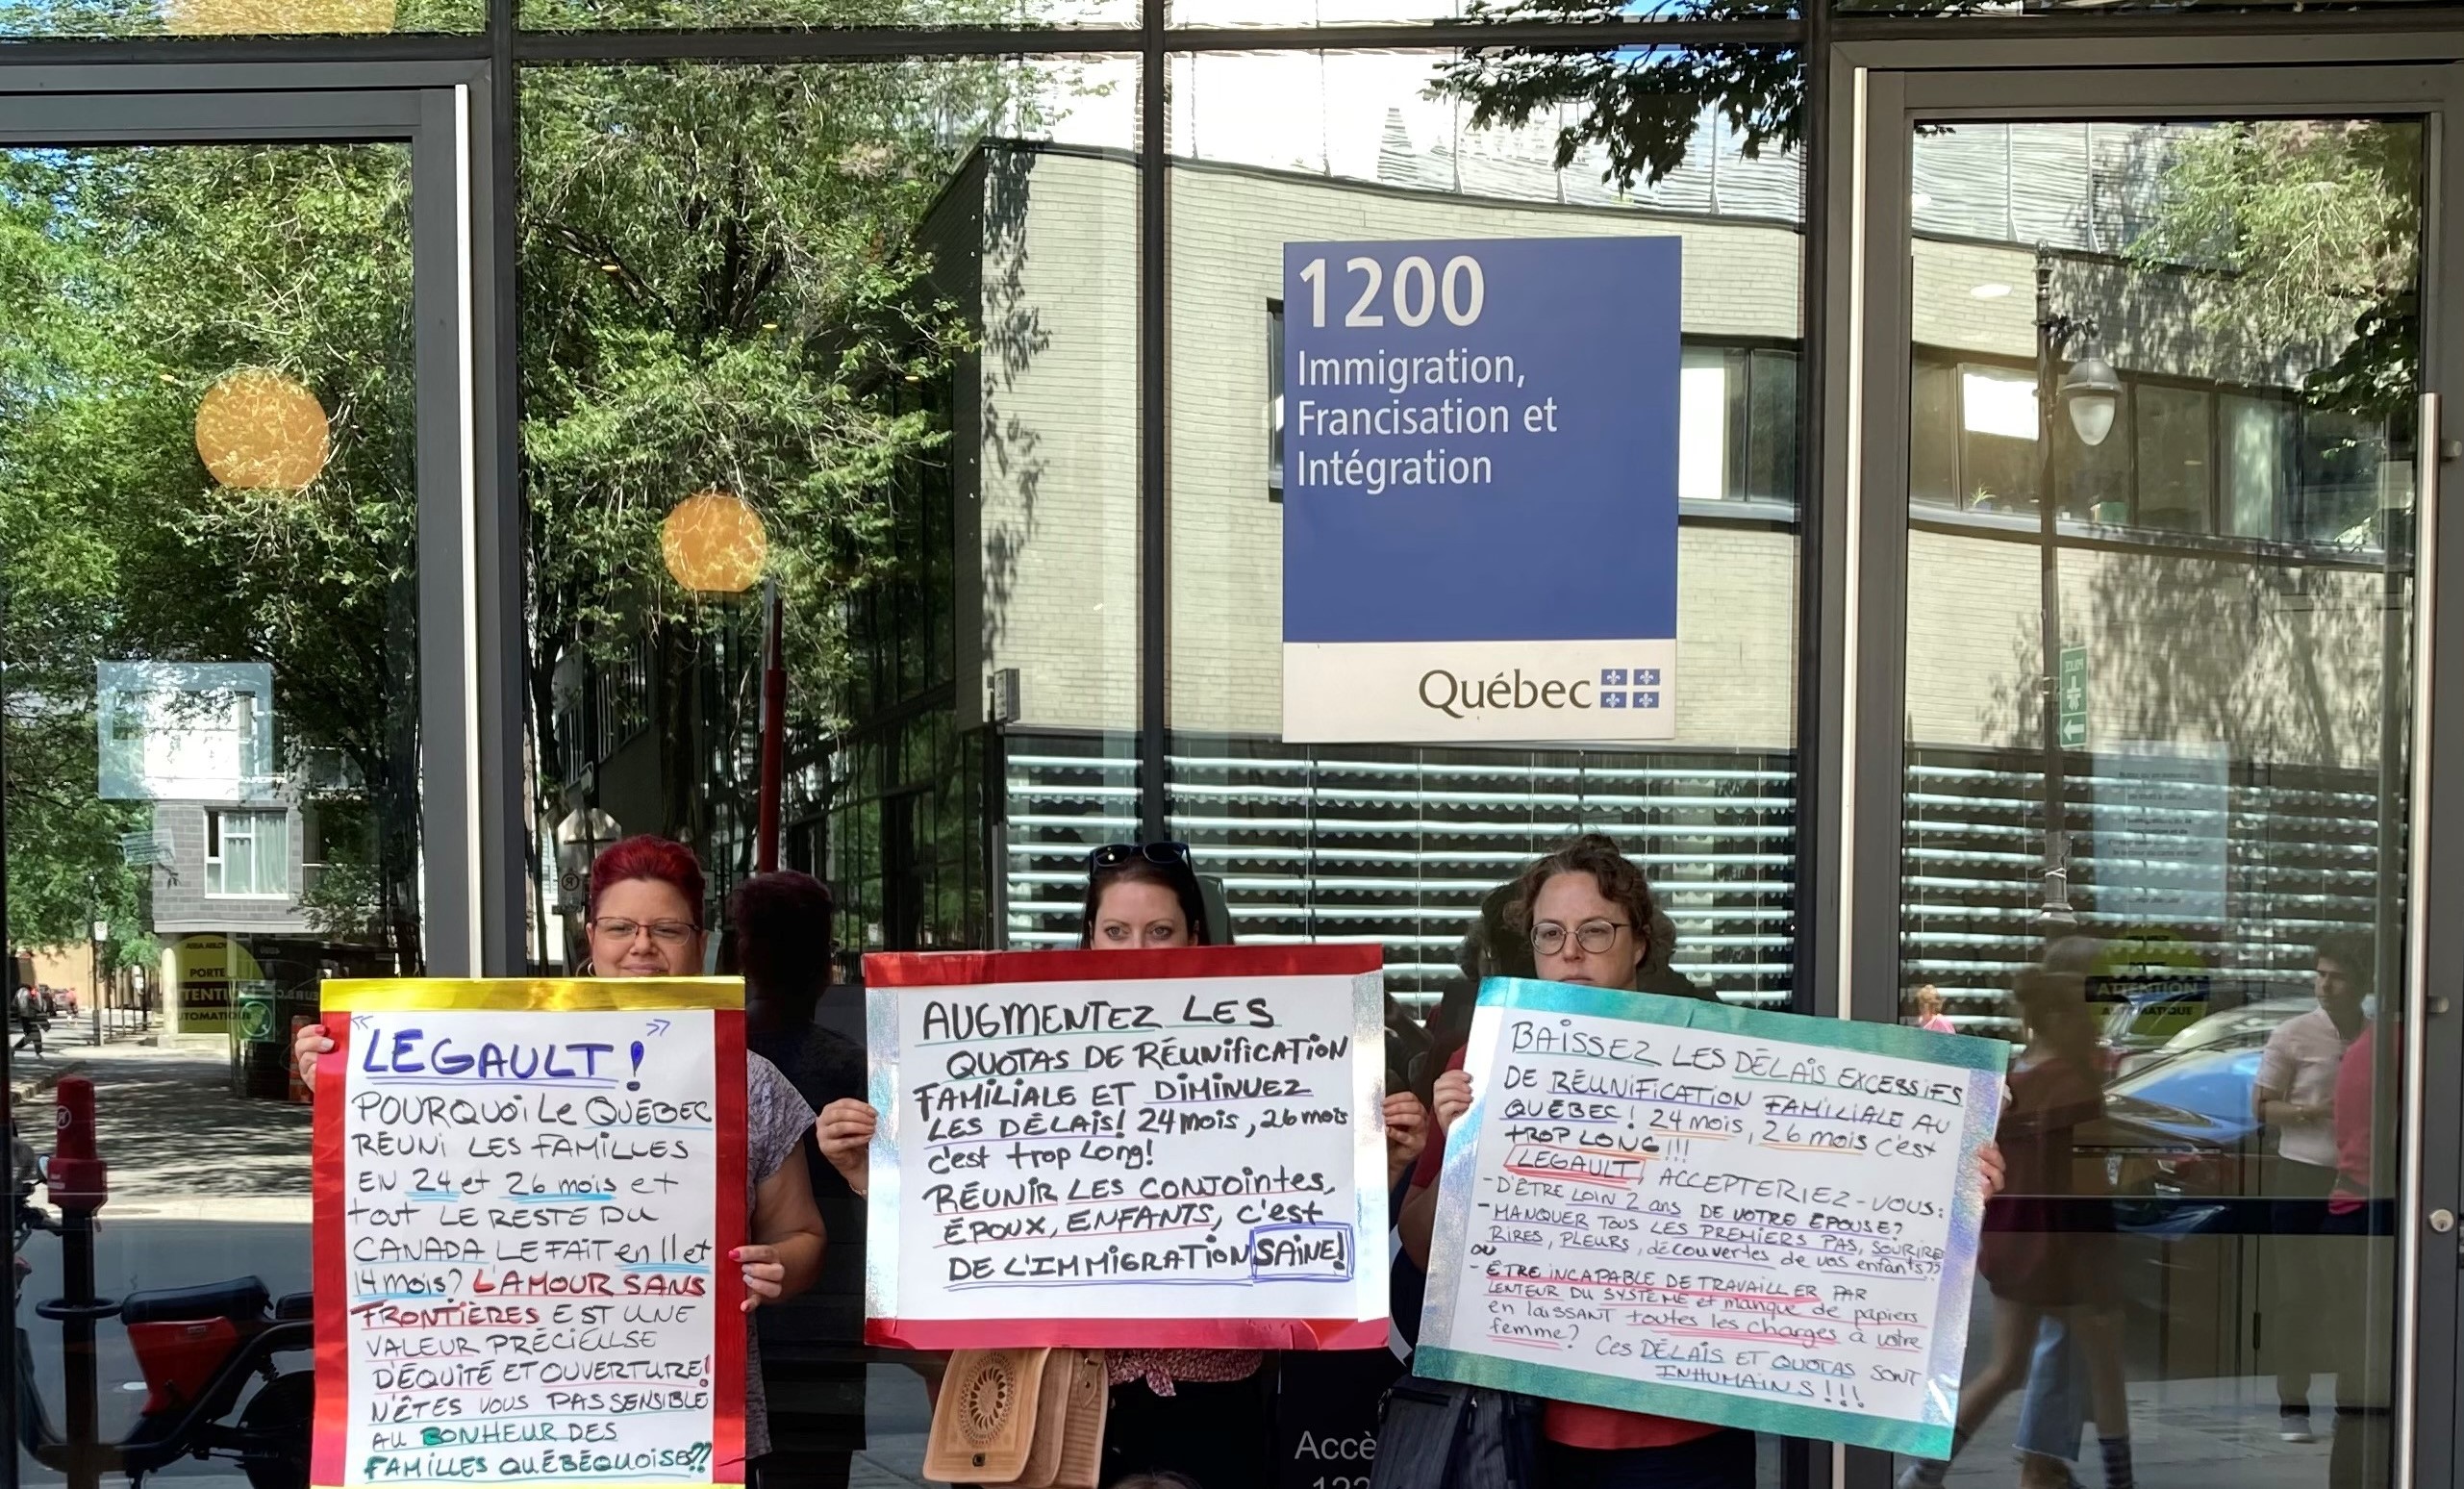 1200
Immigration,
Francisation et
Intégration
Québec
PORTE
ATTENTION
" LEGAULT! "
POURQUOI LE QUÉBEC
RÉUNI LES FAMILLES
EN 24 et 26 mois et
tout LE RESTE DU
CANADA LE FAIT en 11 et
14 mois? L'AMOUR SANS
FRONTIÈRES EST UNE
VALEUR PRÉCIEUSE
D'ÉQUITÉ ET OUVERTURE!
N'ÊTES VOUS PAS SENSIBLE
AU BONHEUR DES
FAMILLES QUÉBÉQUOISE??
AUGMENTEZ LES
QUOTAS DE RÉUNIFICATION
FAMILIALE ET DIMINUEZ
LES DÉLAIS! 24 mois, 26 mois
c'est trop long!
RÉUNIR LES CONJOINTES,
ÉPOUX, ENFANTS, c'est
DE L'IMMIGRATION SAINE!
BAISSEZ LES DÉLAIS EXCESSIFS
DE RÉUNIFICATION FAMILIALE AU
QUÉBEC! 24 mois, 26 mois c'est
trop LONG!!!
LEGAULT, ACCEPTERIEZ-VOUS:
- D'ÊTRE LOIN 2 ans DE VOTRE ÉPOUSE?
- MANQUER TOUS LES PREMIERS PAS, SOURIRE
RIRES, PLEURS, découvertes de vos enfants??
OU
- ÊTRE INCAPABLE DE TRAVAILLER PAR
LENTEUR DU SYSTÈME et manque de papiers
en laissant toutes les charges à votre
femme? Ces DÉLAIS ET QUOTAS SONT
INHUMAINS!!!
Accè